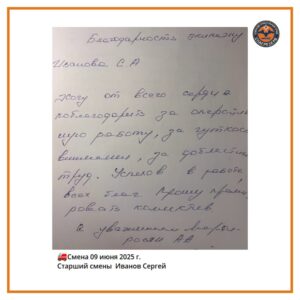 Благодарность экипажу
Иванова С.А
Хочу от всего сердца
поблагодарить за оператив
ную работу, за чуткос
внимание, за доблестны
труд. Успехов в работе,
всех благ. Прошу преми
ровать коллектив.
С уважением
АВ.
Смена 09 июня 2025 г.
Старший смены Иванов Сергей